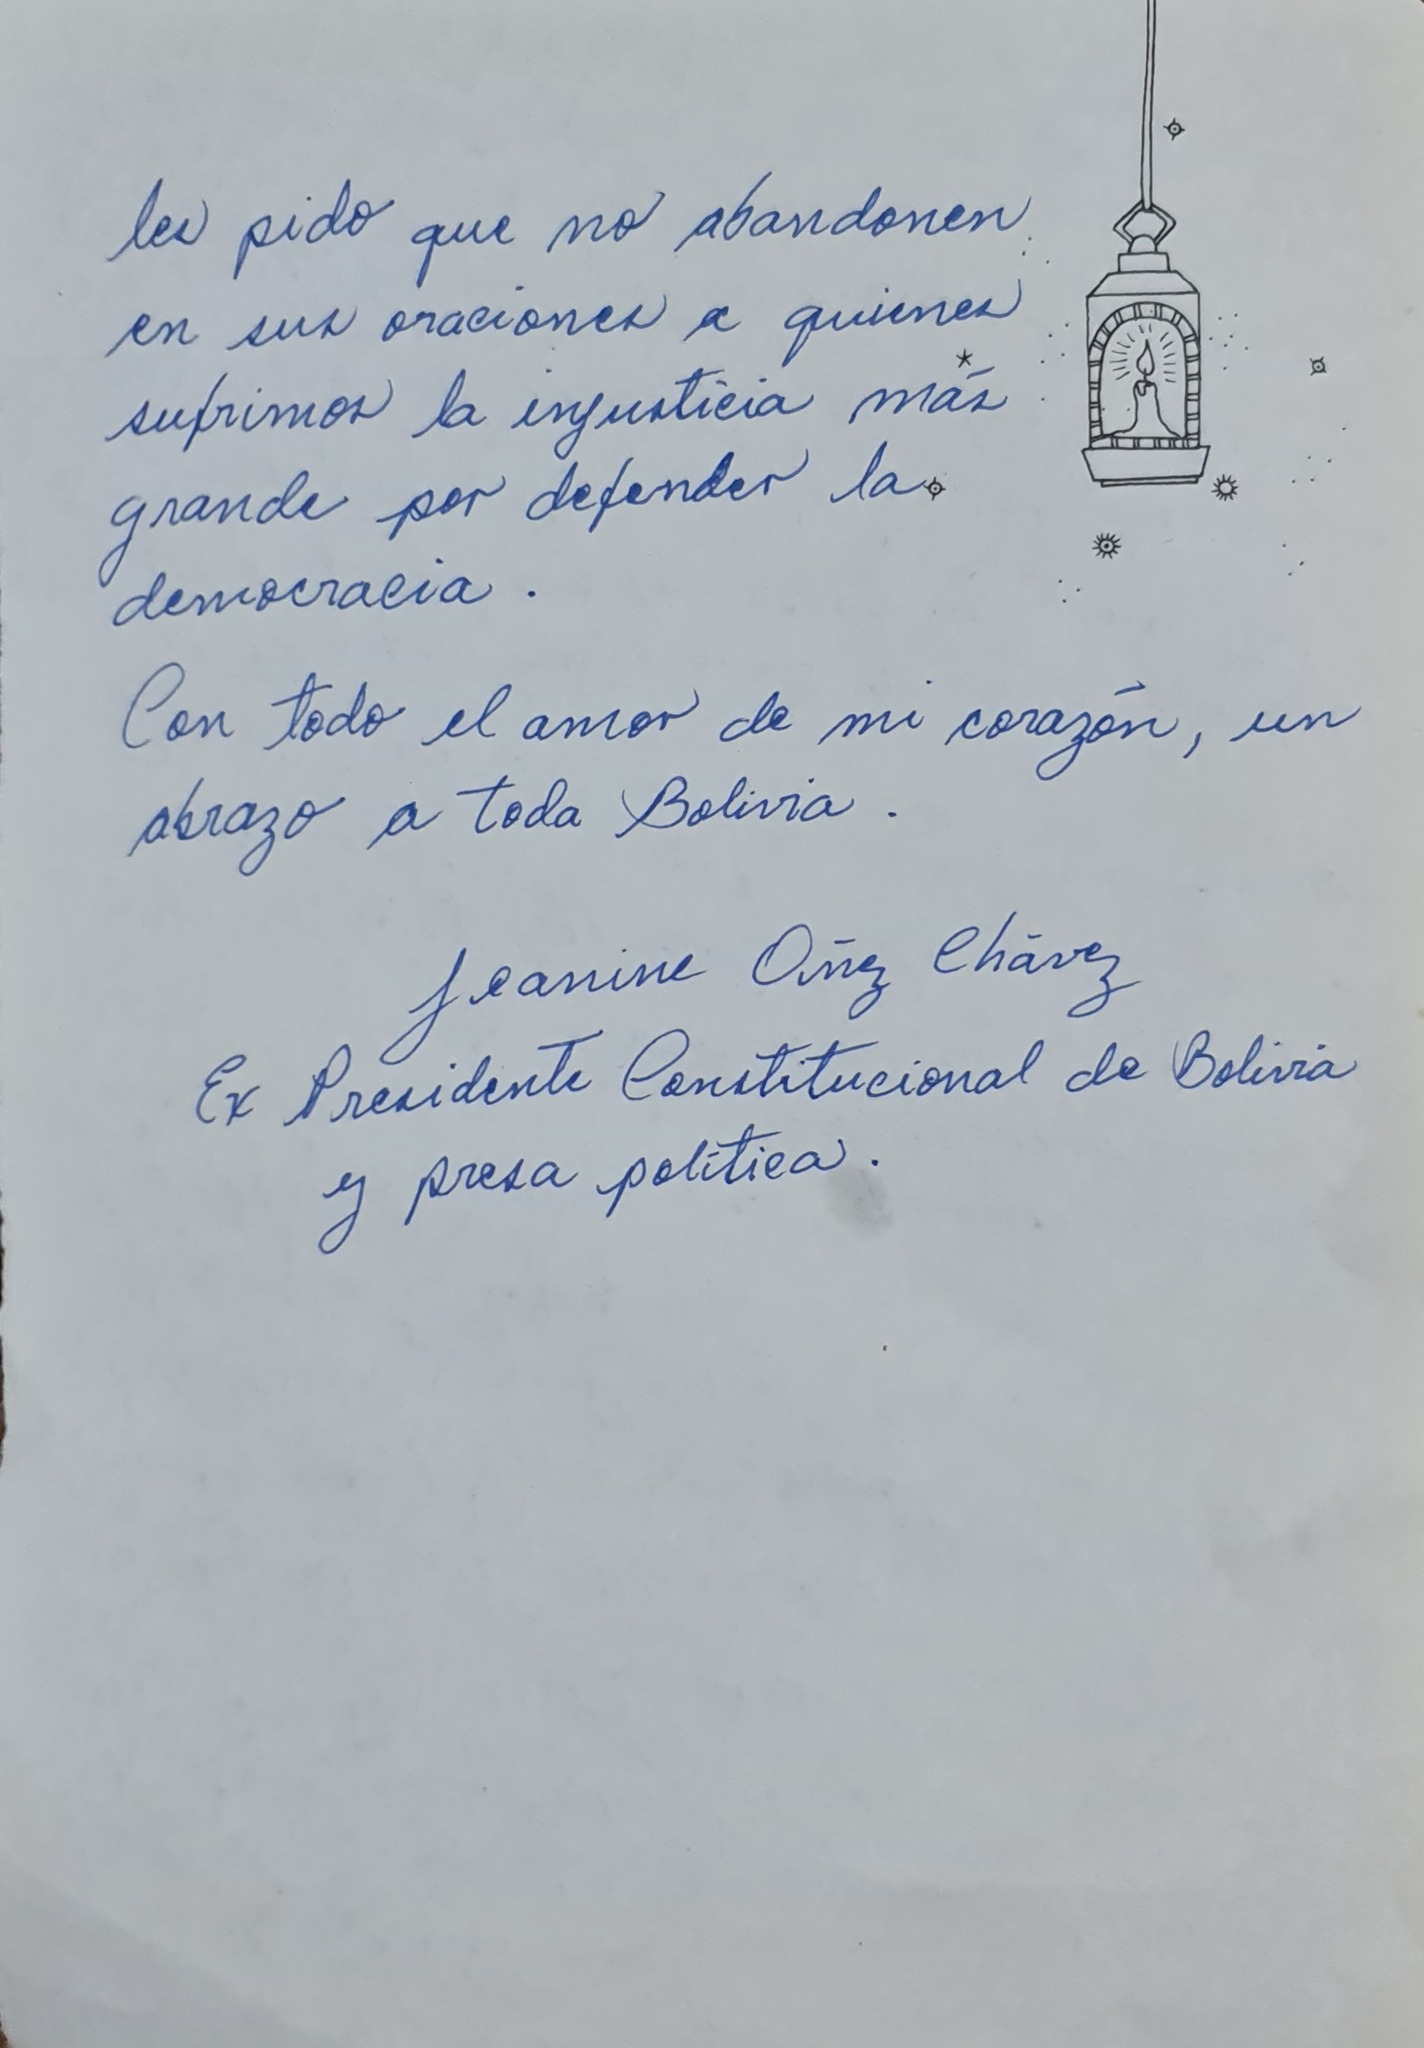 les pido que no abandonen
en sus oraciones a quienes
sufrimos la injusticia más
grande por defender la
democracia.
Con todo el amor de mi corazón, un
abrazo a toda Bolivia.
Jeanine Áñez Chávez
Ex Presidente Constitucional de Bolivia
y presa política.